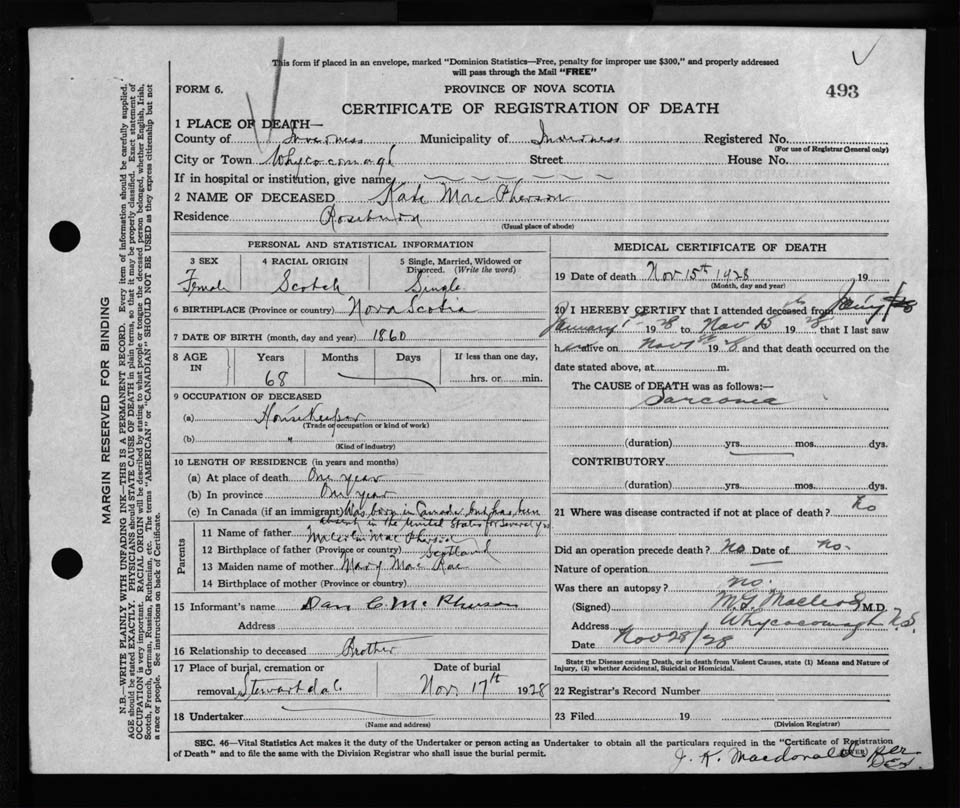 This form if placed in an envelope, marked "Dominion Statistics—Free, penalty for improper use $300," and properly addressed
will pass through the Mail "FREE"
FORM 6.
PROVINCE OF NOVA SCOTIA
493
CERTIFICATE OF REGISTRATION OF DEATH
1 PLACE OF DEATH—
County of Inverness Municipality of Inverness Registered No.
(For use of Registrar General only)
City or Town Whycocomagh Street House No.
If in hospital or institution, give name
2 NAME OF DECEASED Kate Mac Pherson
Residence Rosebury
(Usual place of abode)
PERSONAL AND STATISTICAL INFORMATION
3 SEX 4 RACIAL ORIGIN 5 Single, Married, Widowed or
Divorced. (Write the word)
Female Scotch Single
6 BIRTHPLACE (Province or country) Nova Scotia
7 DATE OF BIRTH (month, day and year) 1860
8 AGE IN Years Months Days If less than one day,
68 hrs. or min.
9 OCCUPATION OF DECEASED
(a) Housekeeper
(Trade or occupation or kind of work)
(b) "
(Kind of industry)
10 LENGTH OF RESIDENCE (in years and months)
(a) At place of death One year
(b) In province One year
(c) In Canada (if an immigrant) Was born in Canada but has been
absent in the United States for several yrs
Parents
11 Name of father Malcolm Mac Pherson
12 Birthplace of father (Province or country) Scotland
13 Maiden name of mother Mary Mac Rae
14 Birthplace of mother (Province or country)
15 Informant's name Dan C. McPherson
Address
16 Relationship to deceased Brother
17 Place of burial, cremation or Date of burial
removal Stewartdale Nov 17th 1928
18 Undertaker
(Name and address)
MEDICAL CERTIFICATE OF DEATH
19 Date of death Nov 15th 1928 19
(Month, day and year)
20 I HEREBY CERTIFY that I attended deceased from
January 1 1928 to Nov 15 1928 that I last saw
her alive on Nov 1928 and that death occurred on the
date stated above, at m.
The CAUSE of DEATH was as follows:—
Sarcoma
(duration) yrs. mos. dys.
CONTRIBUTORY
(duration) yrs. mos. dys.
21 Where was disease contracted if not at place of death? No
Did an operation precede death? no Date of no.
Nature of operation
Was there an autopsy? no.
(Signed) M.G. Macleod M.D.
Address Whycocomagh N.S.
Date Nov 28/28
State the Disease causing Death, or in death from Violent Causes, state (1) Means and Nature of
Injury, (2) whether Accidental, Suicidal or Homicidal.
22 Registrar's Record Number
23 Filed 19
(Division Registrar)
SEC. 46—Vital Statistics Act makes it the duty of the Undertaker or person acting as Undertaker to obtain all the particulars required in the "Certificate of Registration
of Death" and to file the same with the Division Registrar who shall issue the burial permit.
J. K. Macdonald per
MARGIN RESERVED FOR BINDING
N.B.—WRITE PLAINLY WITH UNFADING INK—THIS IS A PERMANENT RECORD. Every item of information should be carefully supplied.
AGE should be stated EXACTLY. PHYSICIANS should STATE CAUSE OF DEATH in plain terms, so that it may be properly classified. Exact statement of
OCCUPATION is very important. RACIAL ORIGIN will be described by stating to what people or tongue the deceased person belonged, whether English, Irish,
Scotch, French, German, Russian, Ruthenian, etc. The terms "AMERICAN" or "CANADIAN" SHOULD NOT BE USED as they express citizenship but not
a race or people. See instructions on back of Certificate.